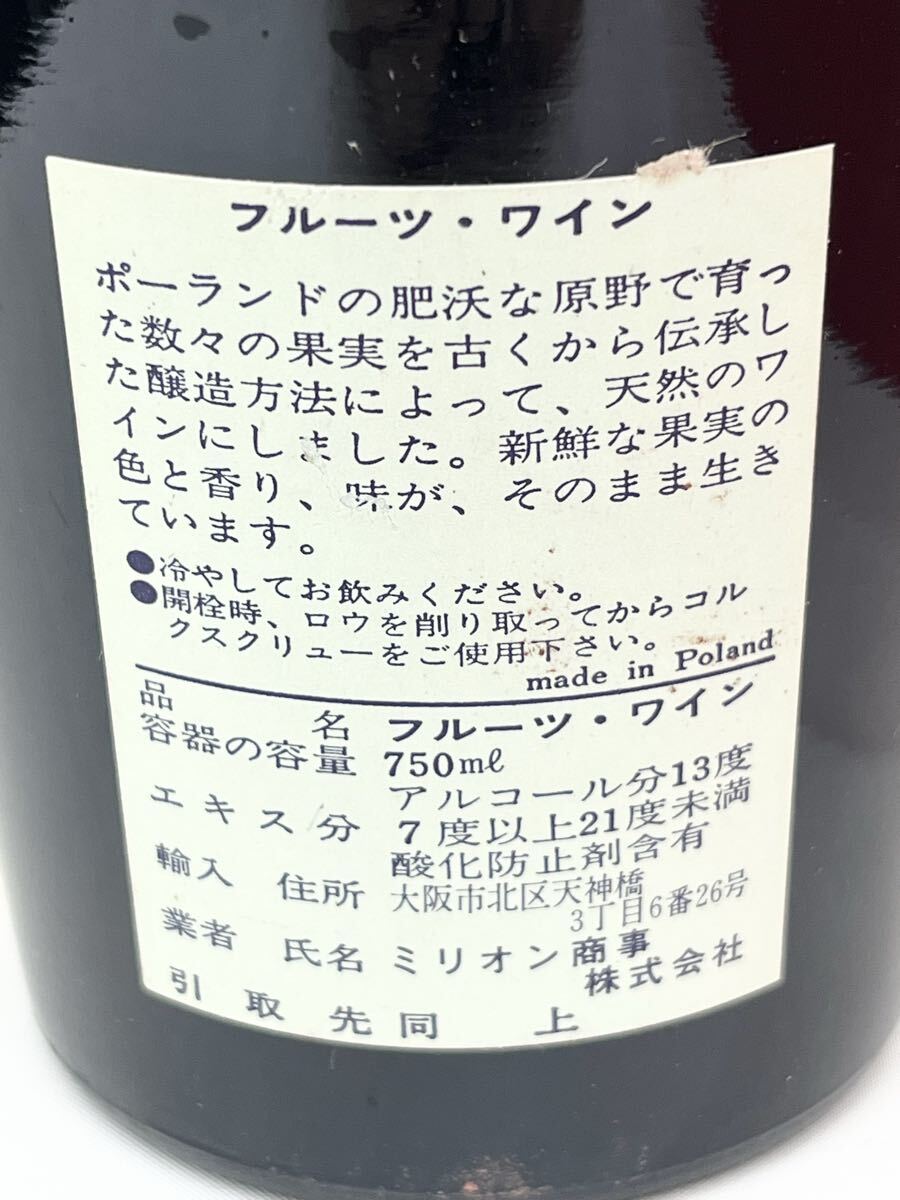 フルーツ・ワイン
ポーランドの肥沃な原野で育っ
た数々の果実を古くから伝承し
た醸造方法によって、天然のワ
インにしました。新鮮な果実の
色と香り、味が、そのまま生き
ています。
●冷やしてお飲みください。
●開栓時、ロウを削り取ってからコル
クスクリューをご使用下さい。
made in Poland
品名 フルーツ・ワイン
容器の容量 750mℓ
アルコール分13度
エキス分 7度以上21度未満
酸化防止剤含有
輸入 住所 大阪市北区天神橋
3丁目6番26号
業者 氏名 ミリオン商事
株式会社
引取先 同上